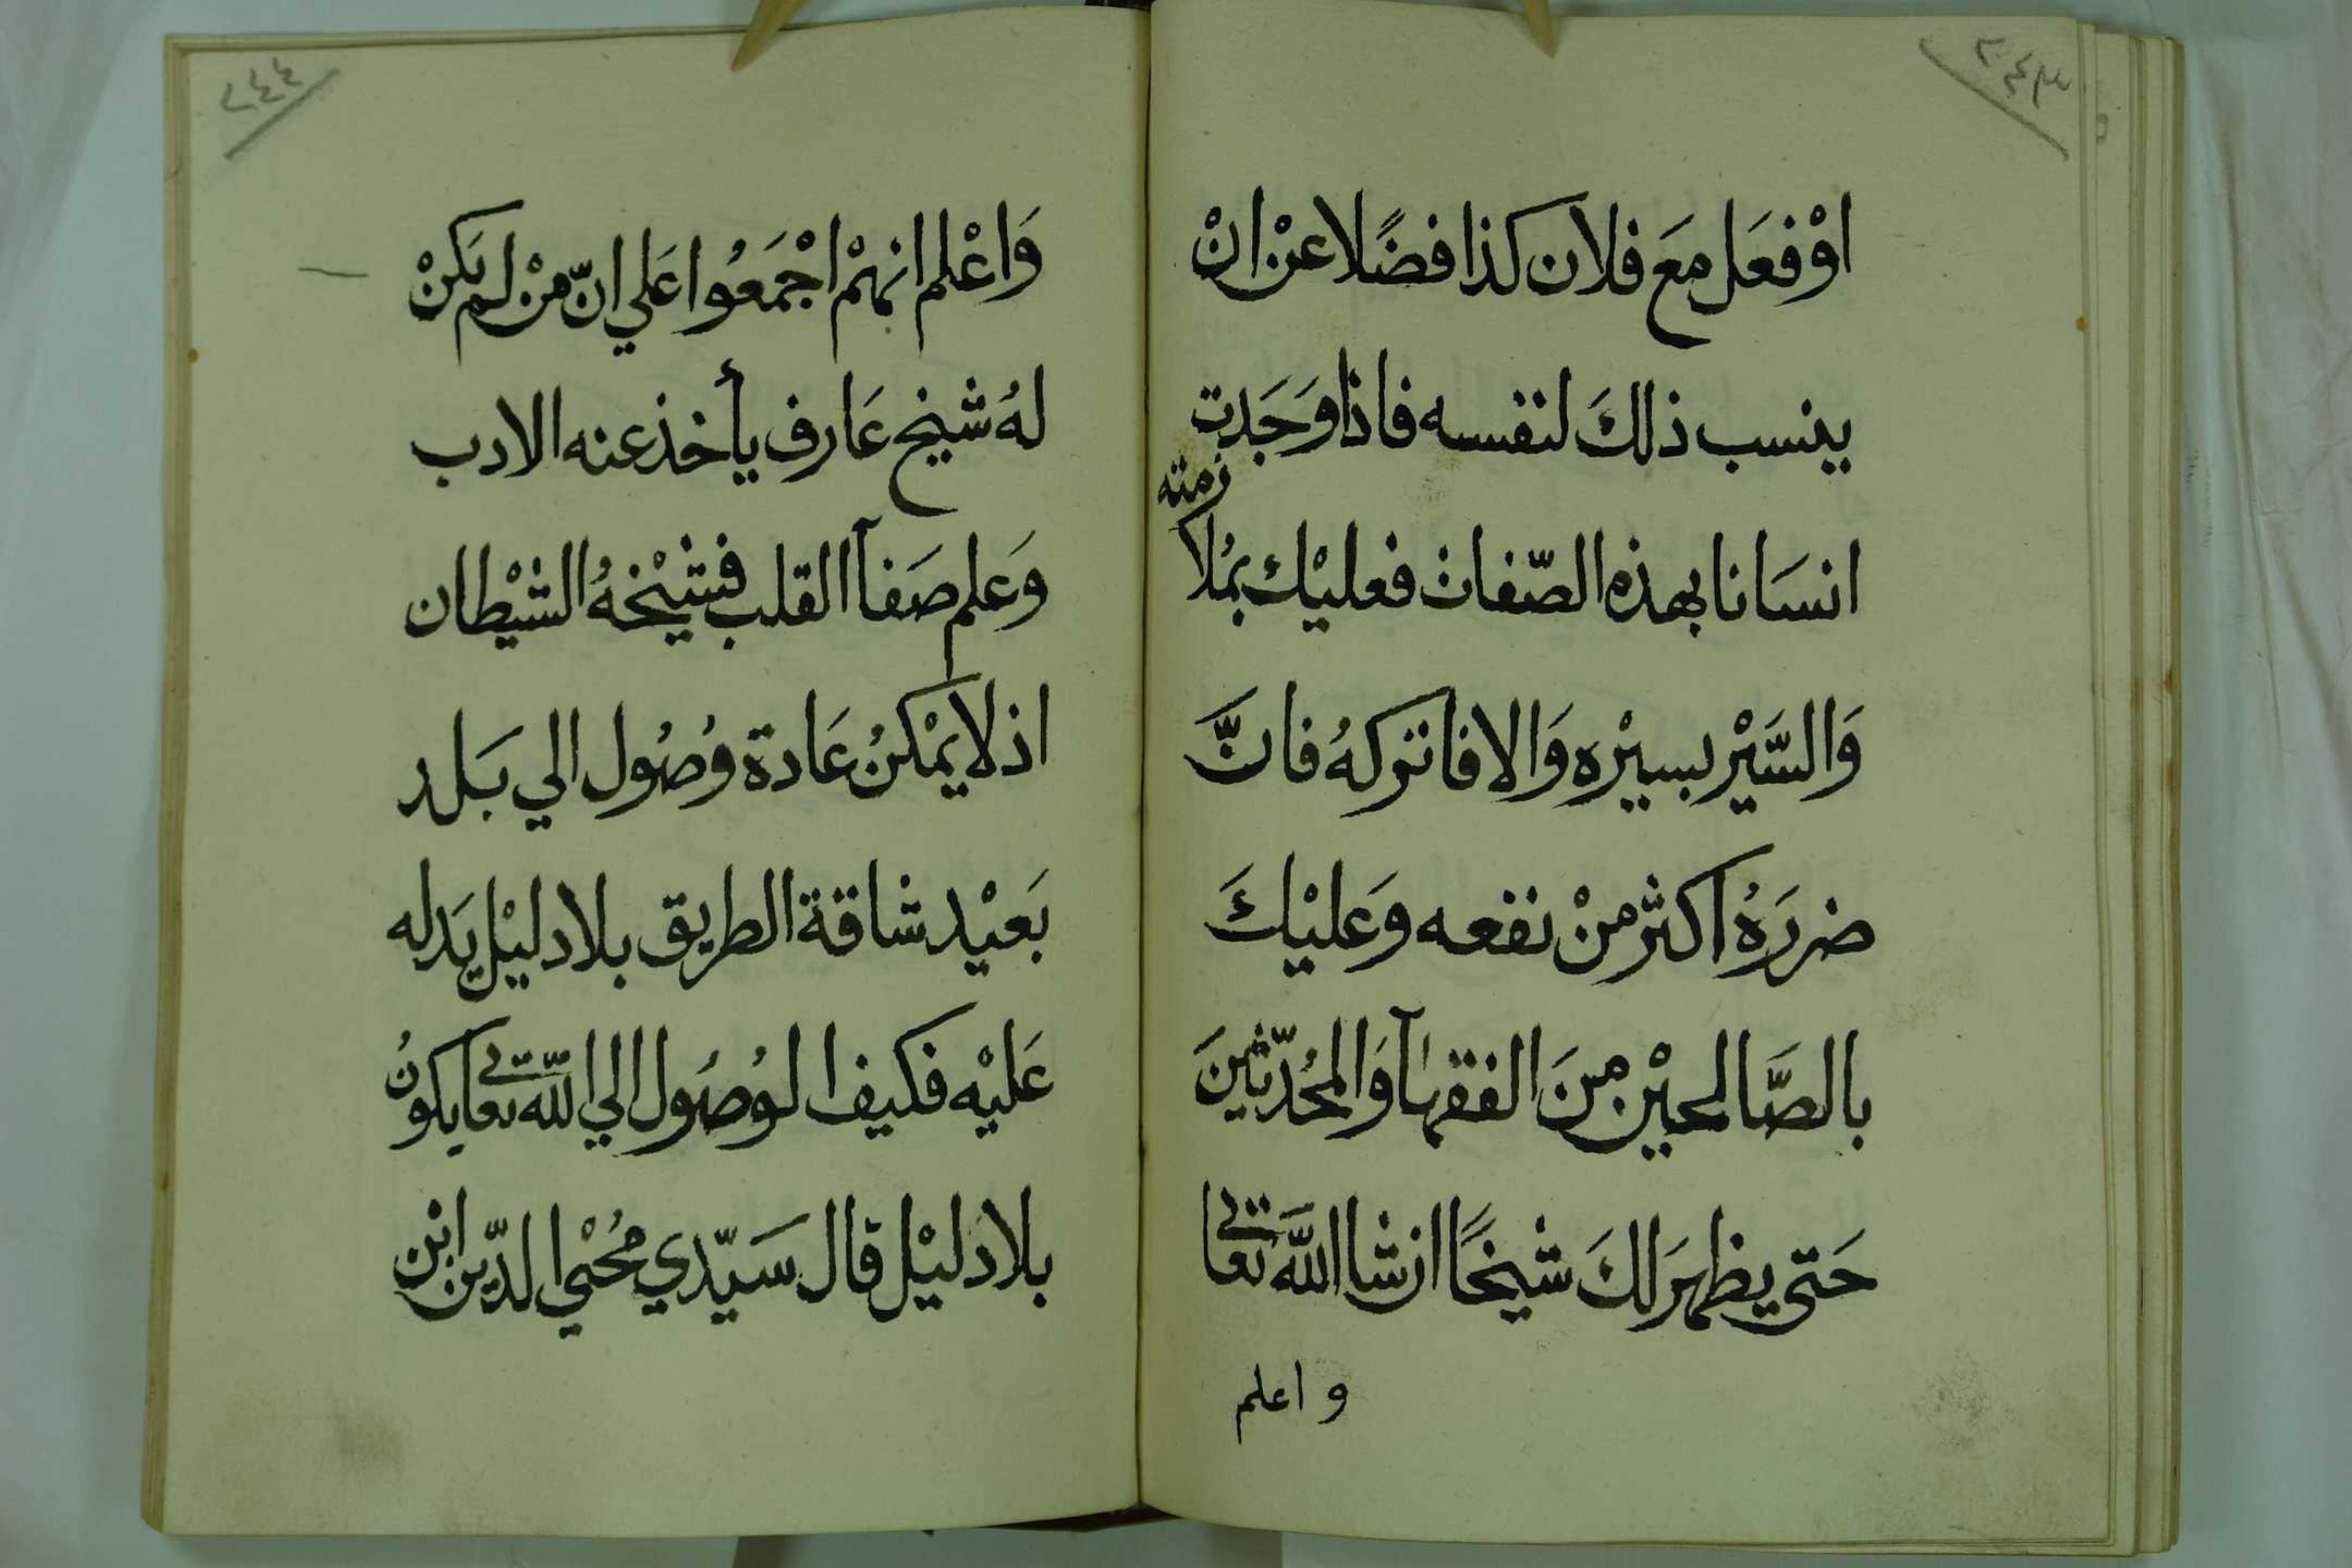 ٢٤٣
اوْ فعَل مَع فلان كذا فضًلا عنْ انْ
ينسب ذلكَ لنفسه فاذا وَجَدت
انسَانا بهذه الصّفات فعليْك بمُلازمته
وَالسَّيْر بسيْره وَالا فاتركهُ فانَّ
ضررَهُ اكثر منْ نفعه وَعليْكَ
بالصَّالحيْن منَ الفقهآ وَالمحُدّثينَ
حَتى يظهرَ لكَ شيخًا ان شا اللَّه تعالى
و اعلم
٢٤٤
وَاعْلم انهمْ اجْمَعُوا عَلي انّ منْ لم يَكنْ
لهُ شيخ عَارف يأخذ عنه الادب
وَعلم صَفآ القلب فشيْخهُ الشيْطان
اذ لا يمْكنُ عَادة وُصُول الي بَلد
بَعيْد شاقة الطريق بلا دليْل يَدله
عَليْه فكيف الوُصُول الي اللّه تعالى يكونُ
بلا دليْل قال سَيّدي مُحْيي الدّين ابْن